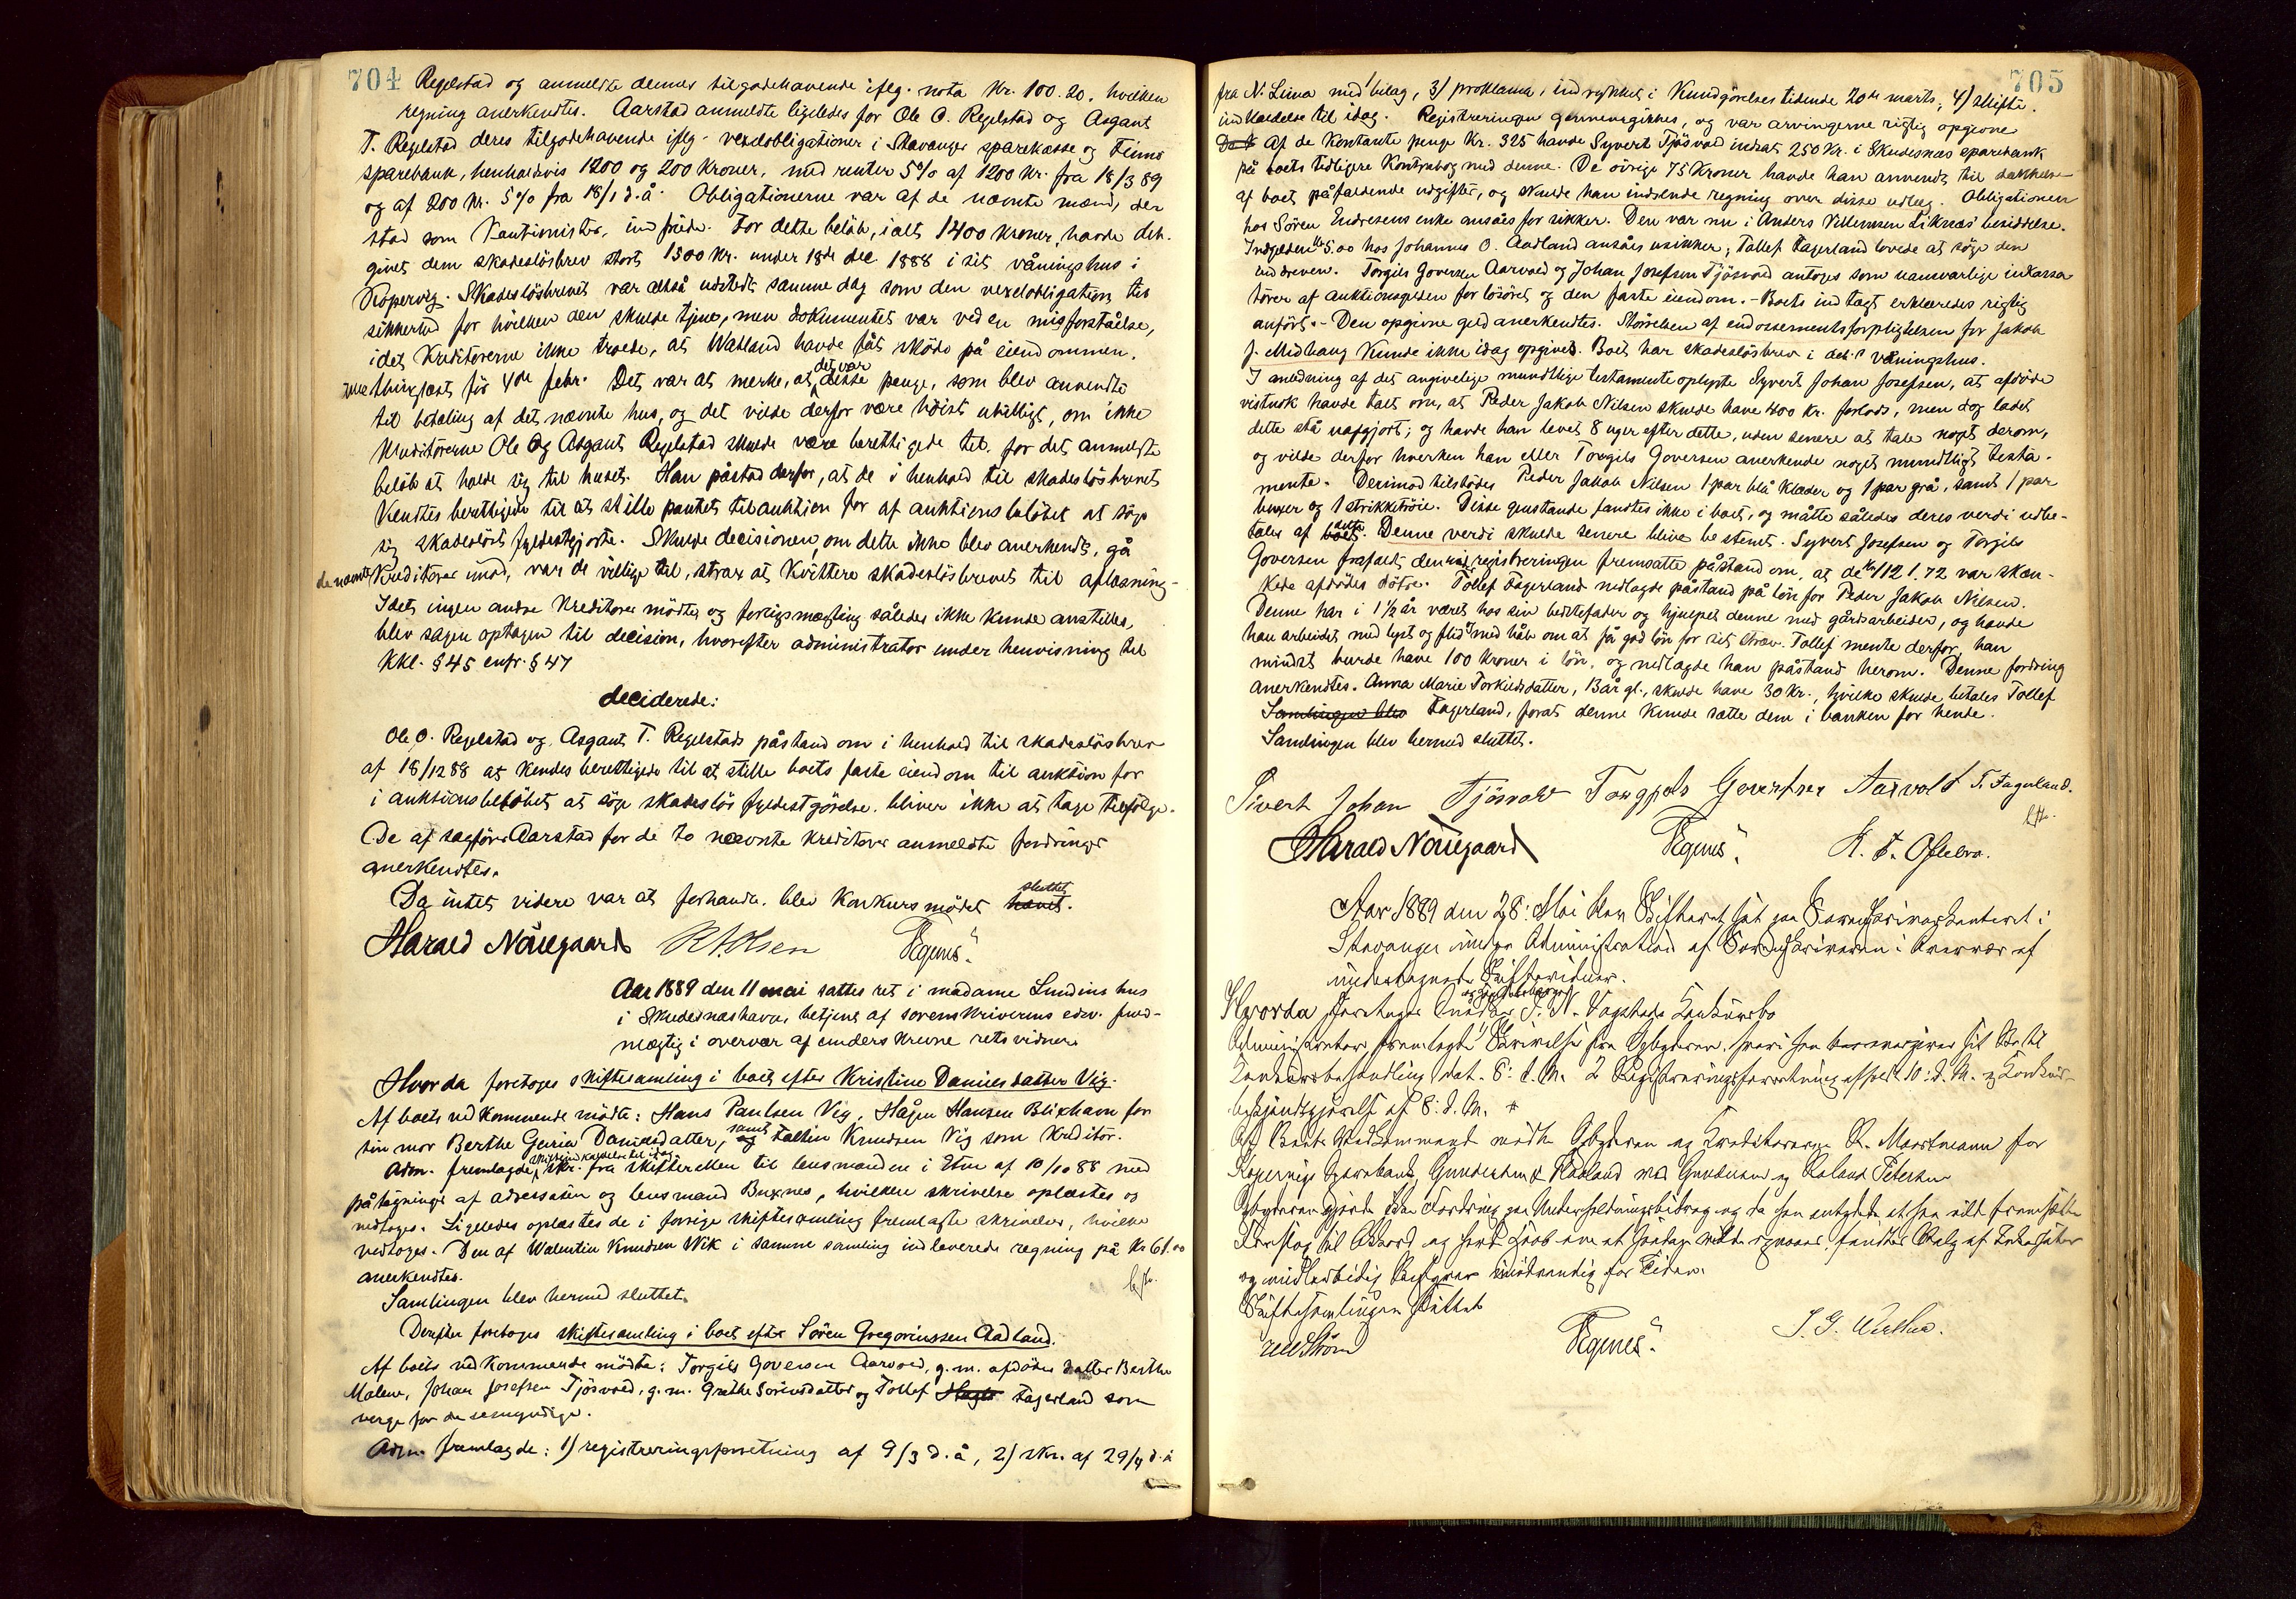 704
Regelstad og anmeldte dennes tilgodehavende iflg. nota Kr. 100.20, hvilken
regning anerkendtes. Aarstad anmeldte ligeledes for Ole O. Regelstad og Asgaut
T. Regelstad deres tilgodehavende iflg. vexelobligationer i Stavanger sparekasse og Finnø
sparebank, henholdsvis 1200 og 200 Kroner, med renter 5% af 1200 Kr. fra 18/3 89
og af 200 Kr. 5% fra 18/1 d.å. Obligationerne var af de nævnte mænd, der
stod som Kautionister, indfriede. For dette beløb, ialt 1400 Kroner, havde deb.
givet dem skadesløsbrev stort 1500 Kr. under 18de dec 1888 i sit våningshus i
Kopervig. Skadesløsbrevet var altså udstedt samme dag som den vexelobligation, til
sikkerhed for hvilken den skulde tjene, men dokumentet var ved en misforståelse,
idet Kreditorerne ikke troede, at Wadland havde fåt skjøde på eiendommen,
ikke thinglæst før 4de febr. Det var at merke, at det var disse penge, som blev anvendte
til betaling af det nævnte hus, og det vilde derfor være høist ubilligt, om ikke
Kreditorerne Ole og Asgaut Regelstad skulde være berettigede til for det anmeldte
beløb at holde sig til huset. Han påstod derfor, at de i henhold til skadesløsbrevet
Kendtes berettigede til at stille pantet til auktion for af auktionsbeløbet at søge
sig skadesløst fyldestgjorte. Skulde decisionen, om dette ikke blev anerkendt, gå
de nævnte Kreditorer imod, var de villige til, strax at Kvittere skadesløsbrevet til aflæsning.
Idet ingen andre Kreditorer mødte og forligsmægling således ikke kunde anstilles,
blev sagen optagen til decision, hvorefter administrator under henvisning til
KKl. § 45 cnfr. § 47
deciderede:
Ole O. Regelstad og Asgaut T. Regelstads påstand om i henhold til skadesløsbrev
af 18/12 88 at Kendes berettigede til at stille boets faste eiendom til auktion for
i auktionsbeløbet at søge skadesløs fyldestgørelse, bliver ikke at tage tilfølge.
De af sagfører Aarstad for de to nævnte Kreditorer anmeldte fordringer
anerkendtes.
Da intet videre var at forhandle, blev Konkursmødet hævet. sluttet
Harald Nørregaard Egenes
Aar 1889 den 11 mai sattes ret i madame Lundins hus
i Skudesnæshavn, betjent af sorenskriverens edsv. fuld-
mægtig i overvær af underskrevne retsvidner.
Hvorda foretoges skiftesamling i boet efter Kristine Danielsdatter Vig.
Af boets vedkommende mødte: Hans Paulsen Vig, Hågen Hansen Blixhavn for
sin mor Berthe Guria Danielsdatter, og samt Faltin Knudsen Vig som Kreditor.
Adm. fremlagde, skifteindkaldelse til idag, skr. fra skifteretten til lensmanden i Etne af 10/10 88 med
påtegninger af adressaten og lensmand Buxnes, hvilken skrivelse oplæstes og
vedtoges. Ligeledes oplæstes de i forrige skiftesamling fremlagte skrivelser, hvilke
vedtoges. Den af Walentin Knudsen Wik i samme samling indleverede regning på Kr 61.00
anerkendtes.
Samlingen blev hermed sluttet.
Derefter foretoges skiftesamling i boet efter Søren Gregoriussen Aadland.
Af boets vedkommende mødte: Torgils Goversen Aarvold, g.m. afdødes datter Berthe
Malene, Johan Josefsen Tjøsvold, g.m. Grethe Sørensdatter og Tollef Fagerland som
verge for de umyndige.
Adm. fremlagde: 1) registreringsforretning af 9/3 d.å, 2) skr. af 29/4 d.å
705
fra N. Lima med 1 bilag, 3) proklama, indrykket i Kundgørelsestidende 20de marts, 4) skifte-
indkaldelse til idag. Registreringen gennemgikkes, og var arvingerne rigtig opgivne
Af de Kontante penge Kr. 325 havde Syvert Tjøsvold indsat 250 Kr. i Skudesnæs sparebank
på boets tidligere Kontrabog med denne. De øvrige 75 Kroner havde han anvendt til dækkelse
af boet påfaldende udgifter, og skulde han indsende regning over disse udlæg. Obligationen
hos Søren Endresens enke ansåes for sikker. Den var nu i Anders Villemsen Liknes' besiddelse.
Indgælden Kr 5.00 hos Johannes O. Aadland ansåes usikker; Tollef Fagerland lovede at søge den
inddreven. Torgils Goversen Aarvold og Johan Josefsen Tjøsvold antoges som uansvarlige inkassa-
tører af auktionsgælden for løsøret og den faste eiendom. - Boets indtægt erklæredes rigtig
anført. - Den opgivne gæld anerkendtes. Størrelsen af endossementsforpligtelsen for Jakob
J. Midhaug Kunde ikke idag opgives. Boet har skadesløsbrev i deb.s våningshus.
I anledning af det angivelige mundtlige testamente oplyste Syvert Johan Josefsen, at afdøde
vistnok havde talt om, at Peder Jakob Nilsen skulde have 400 Kr. forlods, men dog ladet
dette stå uafgjort; og havde han levet 8 uger efter dette, uden senere at tale noget derom,
og vilde derfor hverken han eller Torgils Goversen anerkende noget mundtligt testa-
mente. Derimod tilstodes Peder Jakob Nilsen 1 par blå klæder og 1 par grå, samt 1 par
buxer og 1 strikketrøie. Disse genstande fandtes ikke i boet, og måtte således deres verdi udbe-
tales af boet. Denne verdi skulde senere blive bestemt. Syvert Josefsen og Torgils
Goversen frafaldt den ved registreringen fremsatte påstand om, at de Kr 1121.72 var skæn-
kede afdødes døtre. Tollef Fagerland nedlagde påstand på løn for Peder Jakob Nilsen.
Denne har i 1½ år været hos sin bedstefader og hjulpet denne med gårdsarbeidet, og havde
han arbeidet med lyst og flid med håb om at få god løn for sit stræv. Tollef mente derfor, han
mindst burde have 100 Kroner i løn, og nedlagde han påstand herom. Denne fordring
anerkendtes. Anna Marie Torkildsdatter, 13 år gl., skulde have 30 Kr., hvilke skulde betales Tollef
Samlingen blev Fagerland, forat denne kunde sætte dem i banken for hende.
Samlingen blev hermed sluttet.
Sivert Johan Tjösvold Torgjels Goversen Aarvold T. Fagerland.
Harald Nørregaard Egenes
Aar 1889 den 28: Mai blev Skifteret sat paa Sorenskriverkontoret i
Stavanger under Administration af Sorenskriveren i Overvær af
undertegnede Skiftevidner.
Hvorda foretoges Konkursbo
Administrator fremlagde Skrivelse fra Opbyderen, hvori han overgiver sit Bo til
Konkursbehandling, dat. 8: d. M. 2 Registreringsforretning afholdt 10: d. M. og Konkurs-
bekjendtgjørelse af 8: d. M.
Af Boets Vedkommende mødte Opbyderen og Kreditorerne R. Maartmann for
Kopervigs Sparebank, Gundersen & Radland ved Gundersen og Roland Petersen
Opbyderen gjorde Fordring paa Underholdningsbidrag og da han antydede at han vilde fremsætte
Forslag til Akkord og havde Haab om at saadan vilde opnaaes, fandtes Valg af Inkassator
og midlertidig Bestyrer unødvendig for Tiden.
Skiftesamlingen sluttet
Egenes